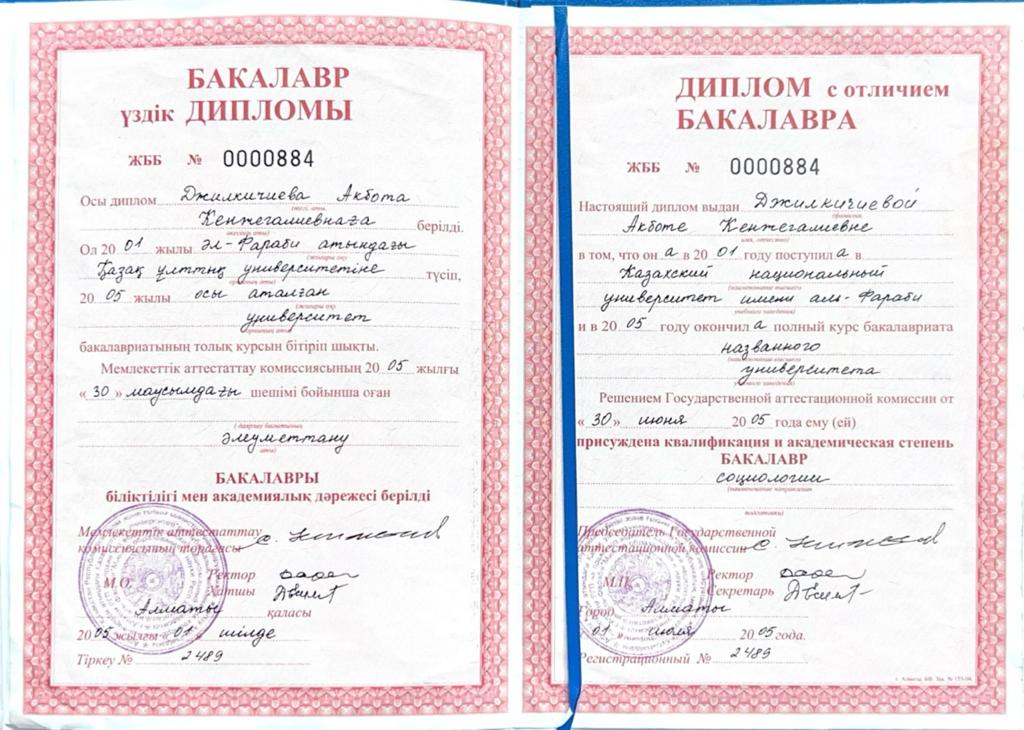 БАКАЛАВР
үздік ДИПЛОМЫ
ЖББ № 0000884
Осы диплом Джилкичиева Ақбота
(тегі, аты,
Кенжегалиевнаға берілді.
әкесінің аты)
Ол 2001 жылы әл-Фараби атындағы
(жоғары оқу
Қазақ ұлттық университетіне түсіп,
орнының аты)
2005 жылы осы аталған
(жоғары оқу
университет
орнының аты)
бакалавриатының толық курсын бітіріп шықты.
Мемлекеттік аттестаттау комиссиясының 2005 жылғы
« 30 » маусымдағы шешімі бойынша оған
(даярлау бағытының
әлеуметтану
аты)
БАКАЛАВРЫ
біліктілігі мен академиялық дәрежесі берілді
Мемлекеттік аттестаттау
комиссиясының төрағасы
М.О. Ректор
Хатшы
Алматы қаласы
2005 жылғы « 01 » шілде
Тіркеу № 2489
ДИПЛОМ с отличием
БАКАЛАВРА
ЖББ № 0000884
Настоящий диплом выдан Джилкичиевой
(фамилия,
Акботе Кенжегалиевне
имя, отчество)
в том, что он а в 2001 году поступил а в
Казахский национальный
(наименование высшего
университет имени аль-Фараби
учебного заведения)
и в 2005 году окончил а полный курс бакалавриата
названного
(наименование высшего
университета
учебного заведения)
Решением Государственной аттестационной комиссии от
« 30» июня 2005 года ему (ей)
присуждена квалификация и академическая степень
БАКАЛАВР
социологии
(наименование направления
подготовки)
Председатель Государственной
аттестационной комиссии
М.П. Ректор
Секретарь
Город Алматы
« 01 » июля 2005 года.
Регистрационный № 2489